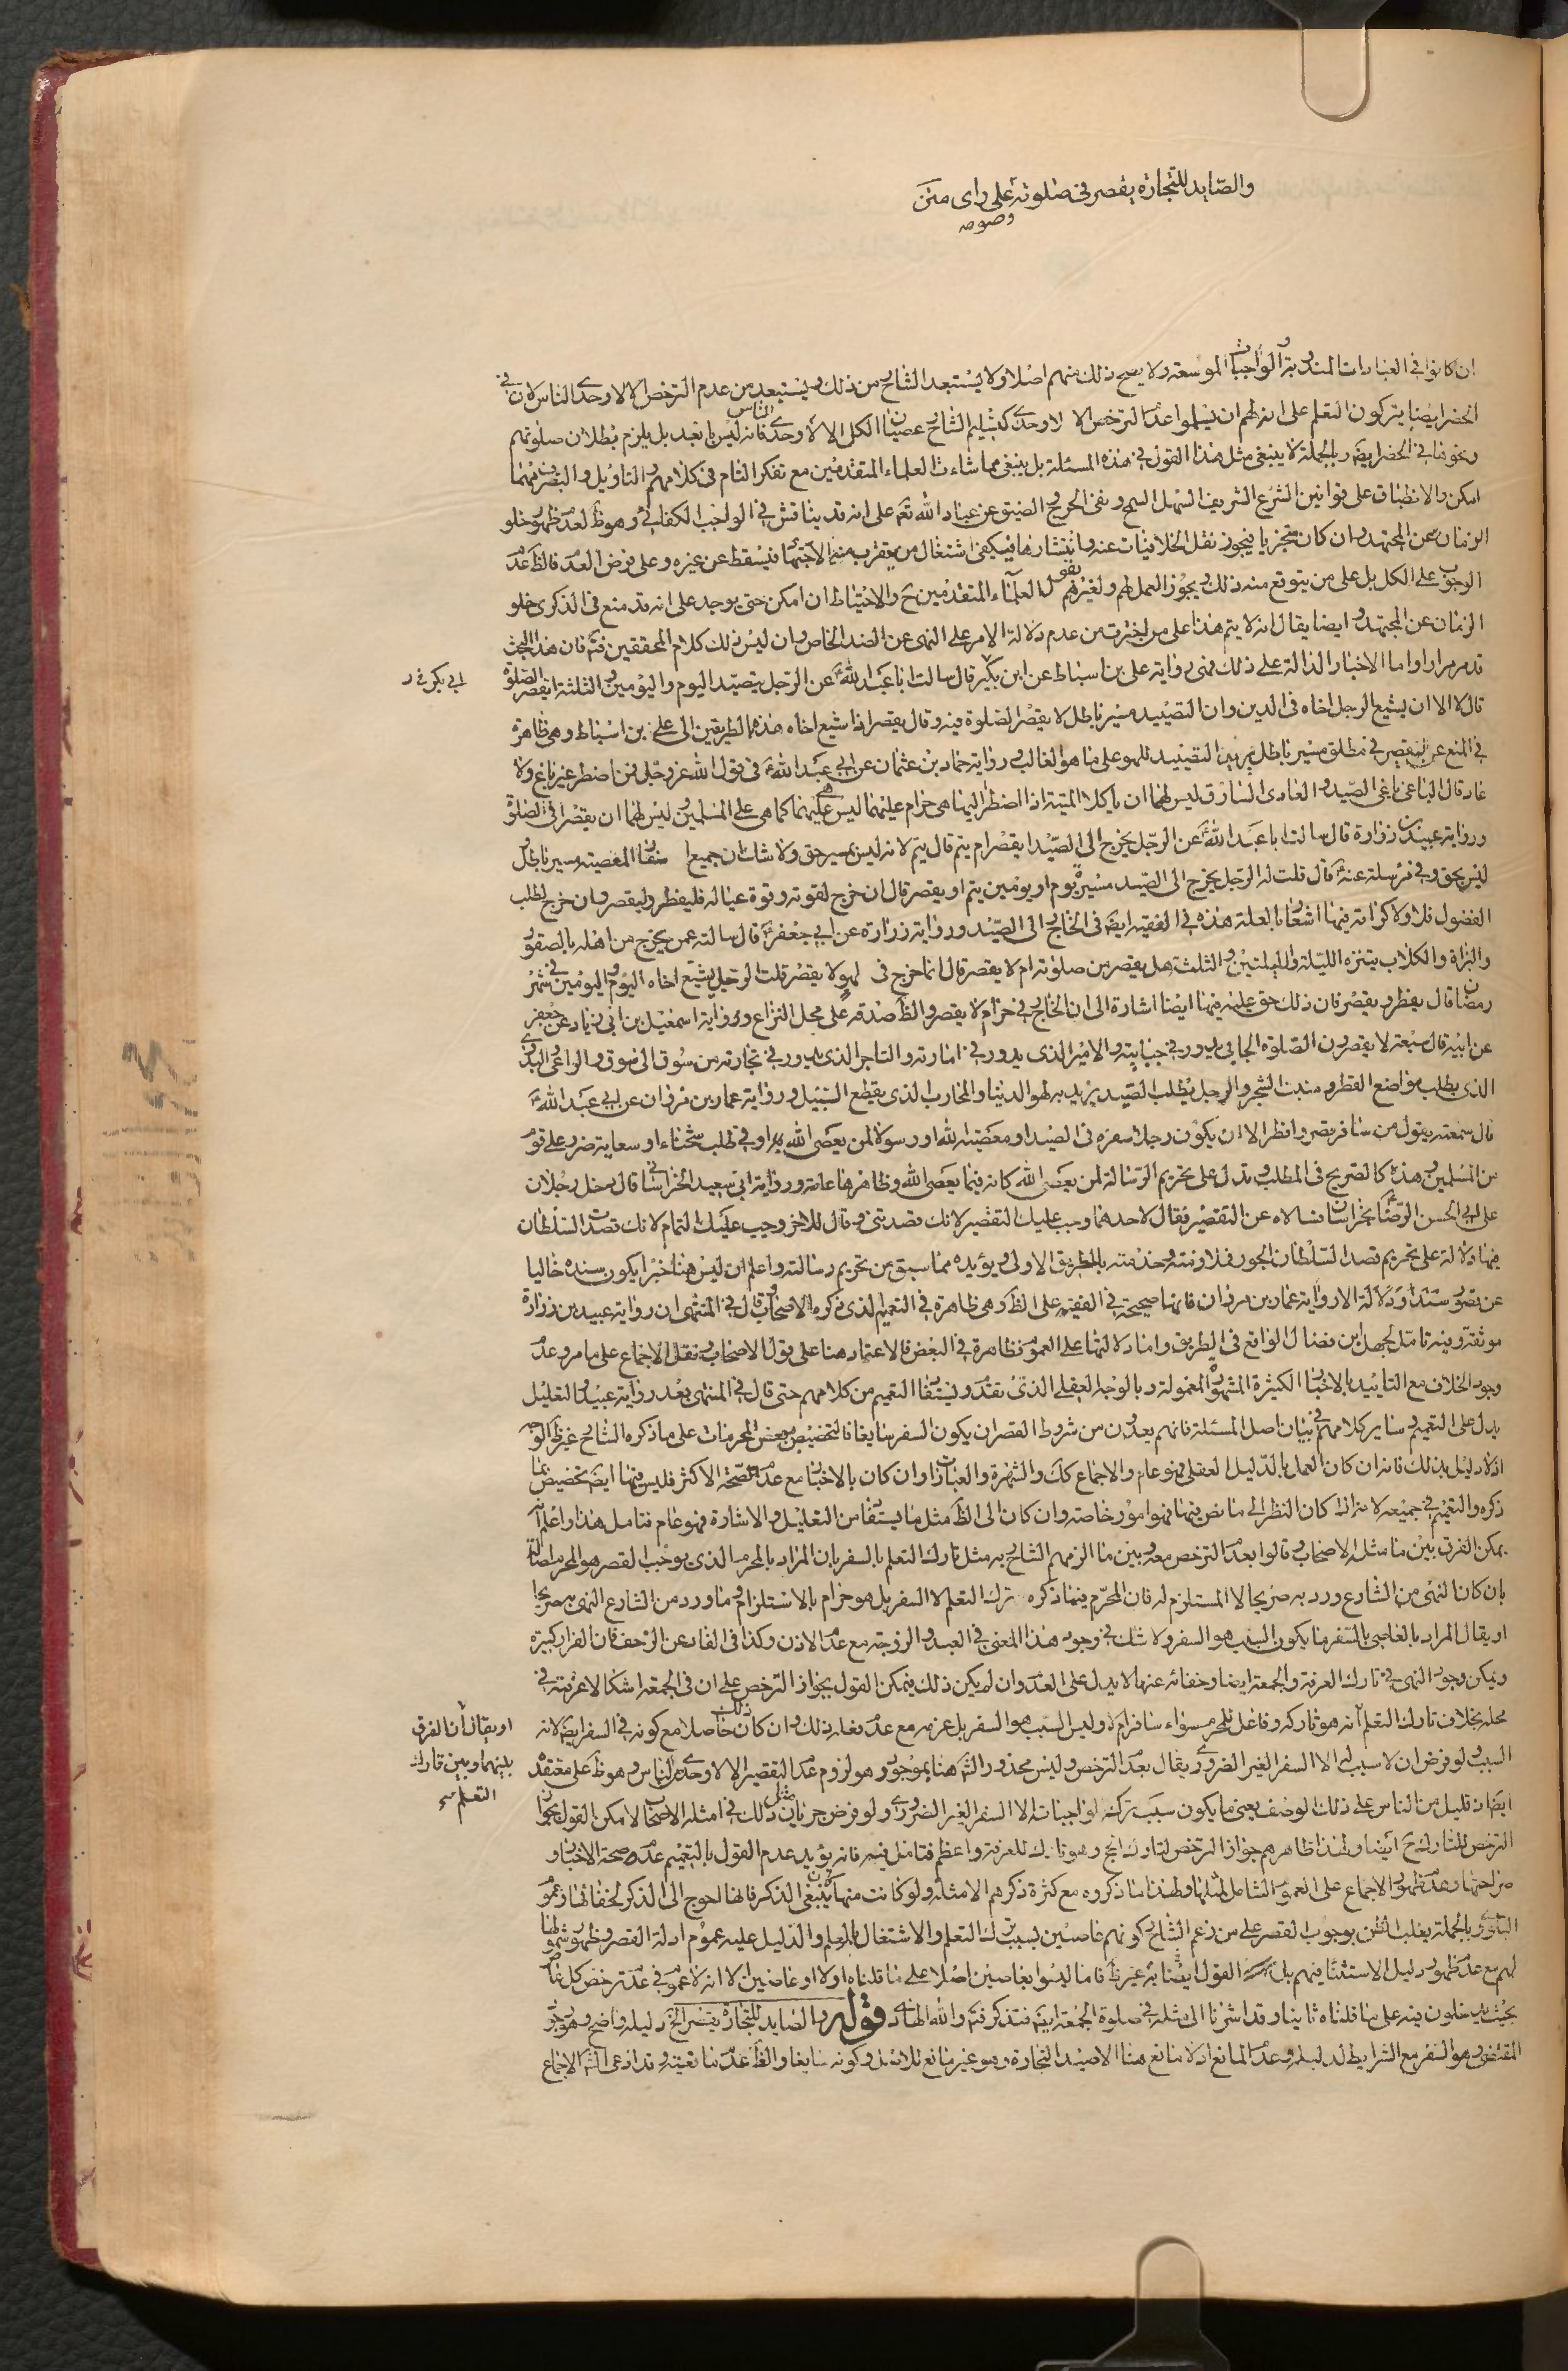 والصايد للتجارة يقصر في صلوته على راى متن
وصومه
ان كانوا في العبادات المندوبة والواجبات الموسعة ولا يصح ذلك منهم اصلا ولا يستبعد الشارح من ذلك ويستبعد من عدم الترخص الا لاوحدى الناس لان في
الحضر ايضا يتركون التعلم على انه لهم ان يسلموا عدم الترخص الا لاوحدى كتسليم الشارح عصيان الكل الا لاوحدى الناس فانه ليس بابعد بل يلزم بطلان صلوتهم
ونحوها في الحضر ايضا وبالجملة لا ينبغى مثل هذا القول في هذه المسئلة بل ينبغى مماشاة العلماء المتقدمين مع تفكر التام في كلامهم والتاويل والتصرف مهما
امكن والانطباق على قوانين الشرع الشريف السهل السمح ونفى الحرج والضيق عن عباد الله تعم على انه قد يناقش في الواجب الكفائي وهو ظ لعدم ظهور خلو
الزمان عن المجتهد وان كان متجزيا فيجوز نقل الخلافيات عنه وانتشارها فيكفى اشتغال من يقرب منه الاجتهاد فيسقط عن غيره وعلى فرض العدم فالظ عدم
الوجوب على الكل بل على من يتوقع منه ذلك ويجوز العمل لهم ولغيرهم بقول العلماء المتقدمين ح والاحتياط ان امكن حتى يوجد على انه قد منع في الذكرى خلو
الزمان عن المجتهد وايضا يقال انه لا يتم هذا على من اخترت من عدم دلالة الامر على النهى عن الضد الخاص وان ليس ذلك كلام المحققين فتم فان هذا البحث
قد مر مرارا واما الاخبار الدالة على ذلك فهى رواية على بن اسباط عن ابن بكير قال سالت ابا عبد الله ع عن الرجل يتصيد اليوم واليومين والثلثة ايقصر الصلوة
ابي بكر خ ر
قال لا الا ان يشيع الرجل اخاه في الدين وان التصييد مسير باطل لا يقصر الصلوة فيه وقال يقصر اذا شيع اخاه هذه الطريقين الى على بن اسباط وهى ظاهرة
في المنع عن التقصير في مطلق مسير باطل يريد التصييد للهو على ما هو الغالب ورواية حماد بن عثمان عن ابي عبد الله ع في قول الله عز وجل فمن اضطر غير باغ ولا
عاد قال الباغى باغى الصيد والعادى السارق ليس لهما ان ياكلا الميتة اذا اضطرا اليها هى حرام عليهما ليس هى عليهما كما هى على المسلمين وليس لهما ان يقصرا في الصلوة
ورواية عبيد بن زرارة قال سالت ابا عبد الله ع عن الرجل يخرج الى الصيد ايقصر ام يتم قال يتم لانه ليس بمسير حق ولا شك ان جميع اسفار المعصية مسير باطل
ليس بحق وفي مرسلة عنه ع قال قلت له الرجل يخرج الى الصيد مسيرة يوم او يومين يتم او يقصر قال ان خرج لقوته وقوة عياله فليفطر وليقصر وان خرج لطلب
الفضول فلا ولا كرامة فيها اشعار بالعلة هذه في الفقيه ايضا في الخارج الى الصيد ورواية زرارة عن ابي جعفر ع قال سالته عمن يخرج من اهله بالصقور
والبزاة والكلاب يتنزه الليلة والليلتين والثلث هل يقصر من صلوته ام لا يقصر قال انما خرج في لهو لا يقصر قلت الرجل يشيع اخاه اليوم واليومين في شهر
رمضان قال يفطر ويقصر فان ذلك حق عليه فيها ايضا اشارة الى ان الخارج في حرام لا يقصر والظ صدقه على محل النزاع ورواية اسمعيل بن ابي زياد عن جعفر
عن ابيه قال سبعة لا يقصرون الصلوة الجابي يدور في جبايته والامير الذى يدور في امارته والتاجر الذى يدور في تجارته من سوق الى سوق والراعى والبدوى
الذى يطلب مواضع القطر ومنبت الشجر والرجل يطلب الصيد يريد به لهو الدنيا والمحارب الذى يقطع السبيل ورواية عمار بن مروان عن ابي عبد الله ع
قال سمعته يقول من سافر يقصر وافطر الا ان يكون رجلا سفره في الصيد او معصية الله او رسولا لمن يعصى الله او في طلب شحناء او سعاية ضرر على قوم
من المسلمين وهذه كالصريح في المطلب وتدل على تحريم الرسالة لمن يعصى الله كانه فيما يعصى الله وظاهرها عامة ورواية ابي سعيد الخراسانى قال دخل رجلان
على ابي الحسن الرضا ع بخراسان فسالاه عن التقصير فقال لاحدهما وجب عليك التقصير لانك قصدتنى وقال للاخر وجب عليك التمام لانك قصدت السلطان
فيها دلالة على تحريم قصد السلطان الجور فملازمته وخدمته بالطريق الاولى ويؤيده مما سبق من تحريم رسالته واعلم ان ليس هنا خبر يكون سنده خاليا
عن قصور سندا ودلالة الا رواية عمار بن مروان فانها صحيحة في الفقيه على الظ وهى ظاهرة في التعميم الذى ذكره الاصحاب قال في المنتهى ان رواية عبيد بن زرارة
موثقة وفيه تامل لجهل ابن فضال الواقع في الطريق واما دلالتها على العموم فظاهرة في البعض فالاعتماد هنا على قول الاصحاب ونقل الاجماع على ما مر وعدم
وجود الخلاف مع التاييد بالاخبار الكثيرة المشهورة المعمولة وبالوجه العقلى الذى تقدم ويستفاد التعميم من كلامهم حتى قال في المنتهى بعد رواية عبيد والتعليل
يدل على التعميم وساير كلامهم في بيان اصل المسئلة فانهم يعدون من شروط القصر ان يكون السفر سايغا فالتخصيص ببعض المحرمات على ما ذكره الشارح غير ظ الوجه
اذ لا دليل بذلك فانه ان كان العمل بالدليل العقلى فهو عام والاجماع كك والشهرة والعبارات وان كان بالاخبار مع عدم صحة الاكثر فليس فيها ايضا تخصيص بما
ذكره والتعميم في جميعه لانه اذا كان النظر الى ما نص فيها فهو امور خاصة وان كان الى الظ مثل ما يستفاد من التعليل والاشارة فهو عام فتامل هذا واعلم انه
يمكن الفرق بين ما مثله الاصحاب وقالوا بعدم الترخص معه وبين ما الزمهم الشارح به مثل تارك التعلم بالسفر بان المراد بالمحرم الذى يوجب القصر هو المحرم اصالة
بان كان النهى من الشارع ورد به صريحا لا المستلزم له فان المحرم فيما ذكره ترك التعلم لا السفر بل هو حرام بالاستلزام وما ورد من الشارع النهى به صريحا
او يقال المراد بالعاصى بالسفر ما يكون السبب هو السفر ولا شك في وجود هذا المعنى في العبد والزوجة مع عدم الاذن وكذا في الفار عن الزحف فان الفرار كبيرة
ويمكن وجود النهى في تارك العرفة والجمعة ايضا وخفائه عنها لا يدل على العدم وان لم يكن ذلك فيمكن القول بجواز الترخص على ان في الجمعة اشكالا عرفته في
محله بخلاف تارك التعلم لانه هو تاركه وفاعل للمحرم سواء سافر ام لا وليس السبب هو السفر بل عزمه مع عدم فعله ذلك وان كان ذلك حاصلا مع كونه في السفر ايضا لانه
او يقال ان الفرق
بينهما وبين تارك
التعلم
السبب ولو فرض ان لا سبب له الا السفر الغير الضرورى ويقال بعدم الترخص وليس محذور الشارح هنا بموجود وهو لزوم عدم التقصير الا لاوحدى الناس وهو ظ على معتقده
ايضا اذ قليل من الناس على ذلك الوصف يعنى ما يكون سبب تركه لواجباته الا السفر الغير الضرورى ولو فرض جريان مثل ذلك في امثلة الاصحاب لامكن القول بجواز
الترخص للتارك ح ايضا ولهذا ظاهرهم جواز الترخص لتارك الحج وهو تارك للعرفة واعظم فتامل فيه فانه يؤيد عدم القول بالتعميم عدم صحة الاخبار و
صراحتها وعدم ظهور الاجماع على العموم الشامل لمثلها ولهذا ما ذكروه مع كثرة ذكرهم الامثلة ولو كانت منها ينبغى الذكر فانها احوج الى الذكر لخفائها وعموم
البلوى وبالجملة يغلب الظن بوجوب القصر على من زعم الشارح كونهم عاصين بسبب ترك التعلم والاشتغال بالعلم والدليل عليه عموم ادلة القصر وظهور شمولها
لهم مع عدم ظهور دليل الاستثناء فيهم بل القول ايضا به غير ظ فاما ليسوا بعاصين اصلا على ما قلناه اولا او عاصين الا انه لا عموم في عدم ترخص كل عاص
بحيث يدخلون فيه على ما قلناه ثانيا وقد اشرنا الى مثله في صلوة الجمعة ايضا فتذكر فتم والله الهادى قوله والصايد للتجارة يقصر الخ دليله واضح وهو وجود
المقتضى وهو السفر مع الشرايط لدليله وعدم المانع اذ لا مانع هنا الا صيد التجارة وهو غير مانع للاصل وكونه سايغا والظ عدم مانعيته وقد ادعى الاجماع